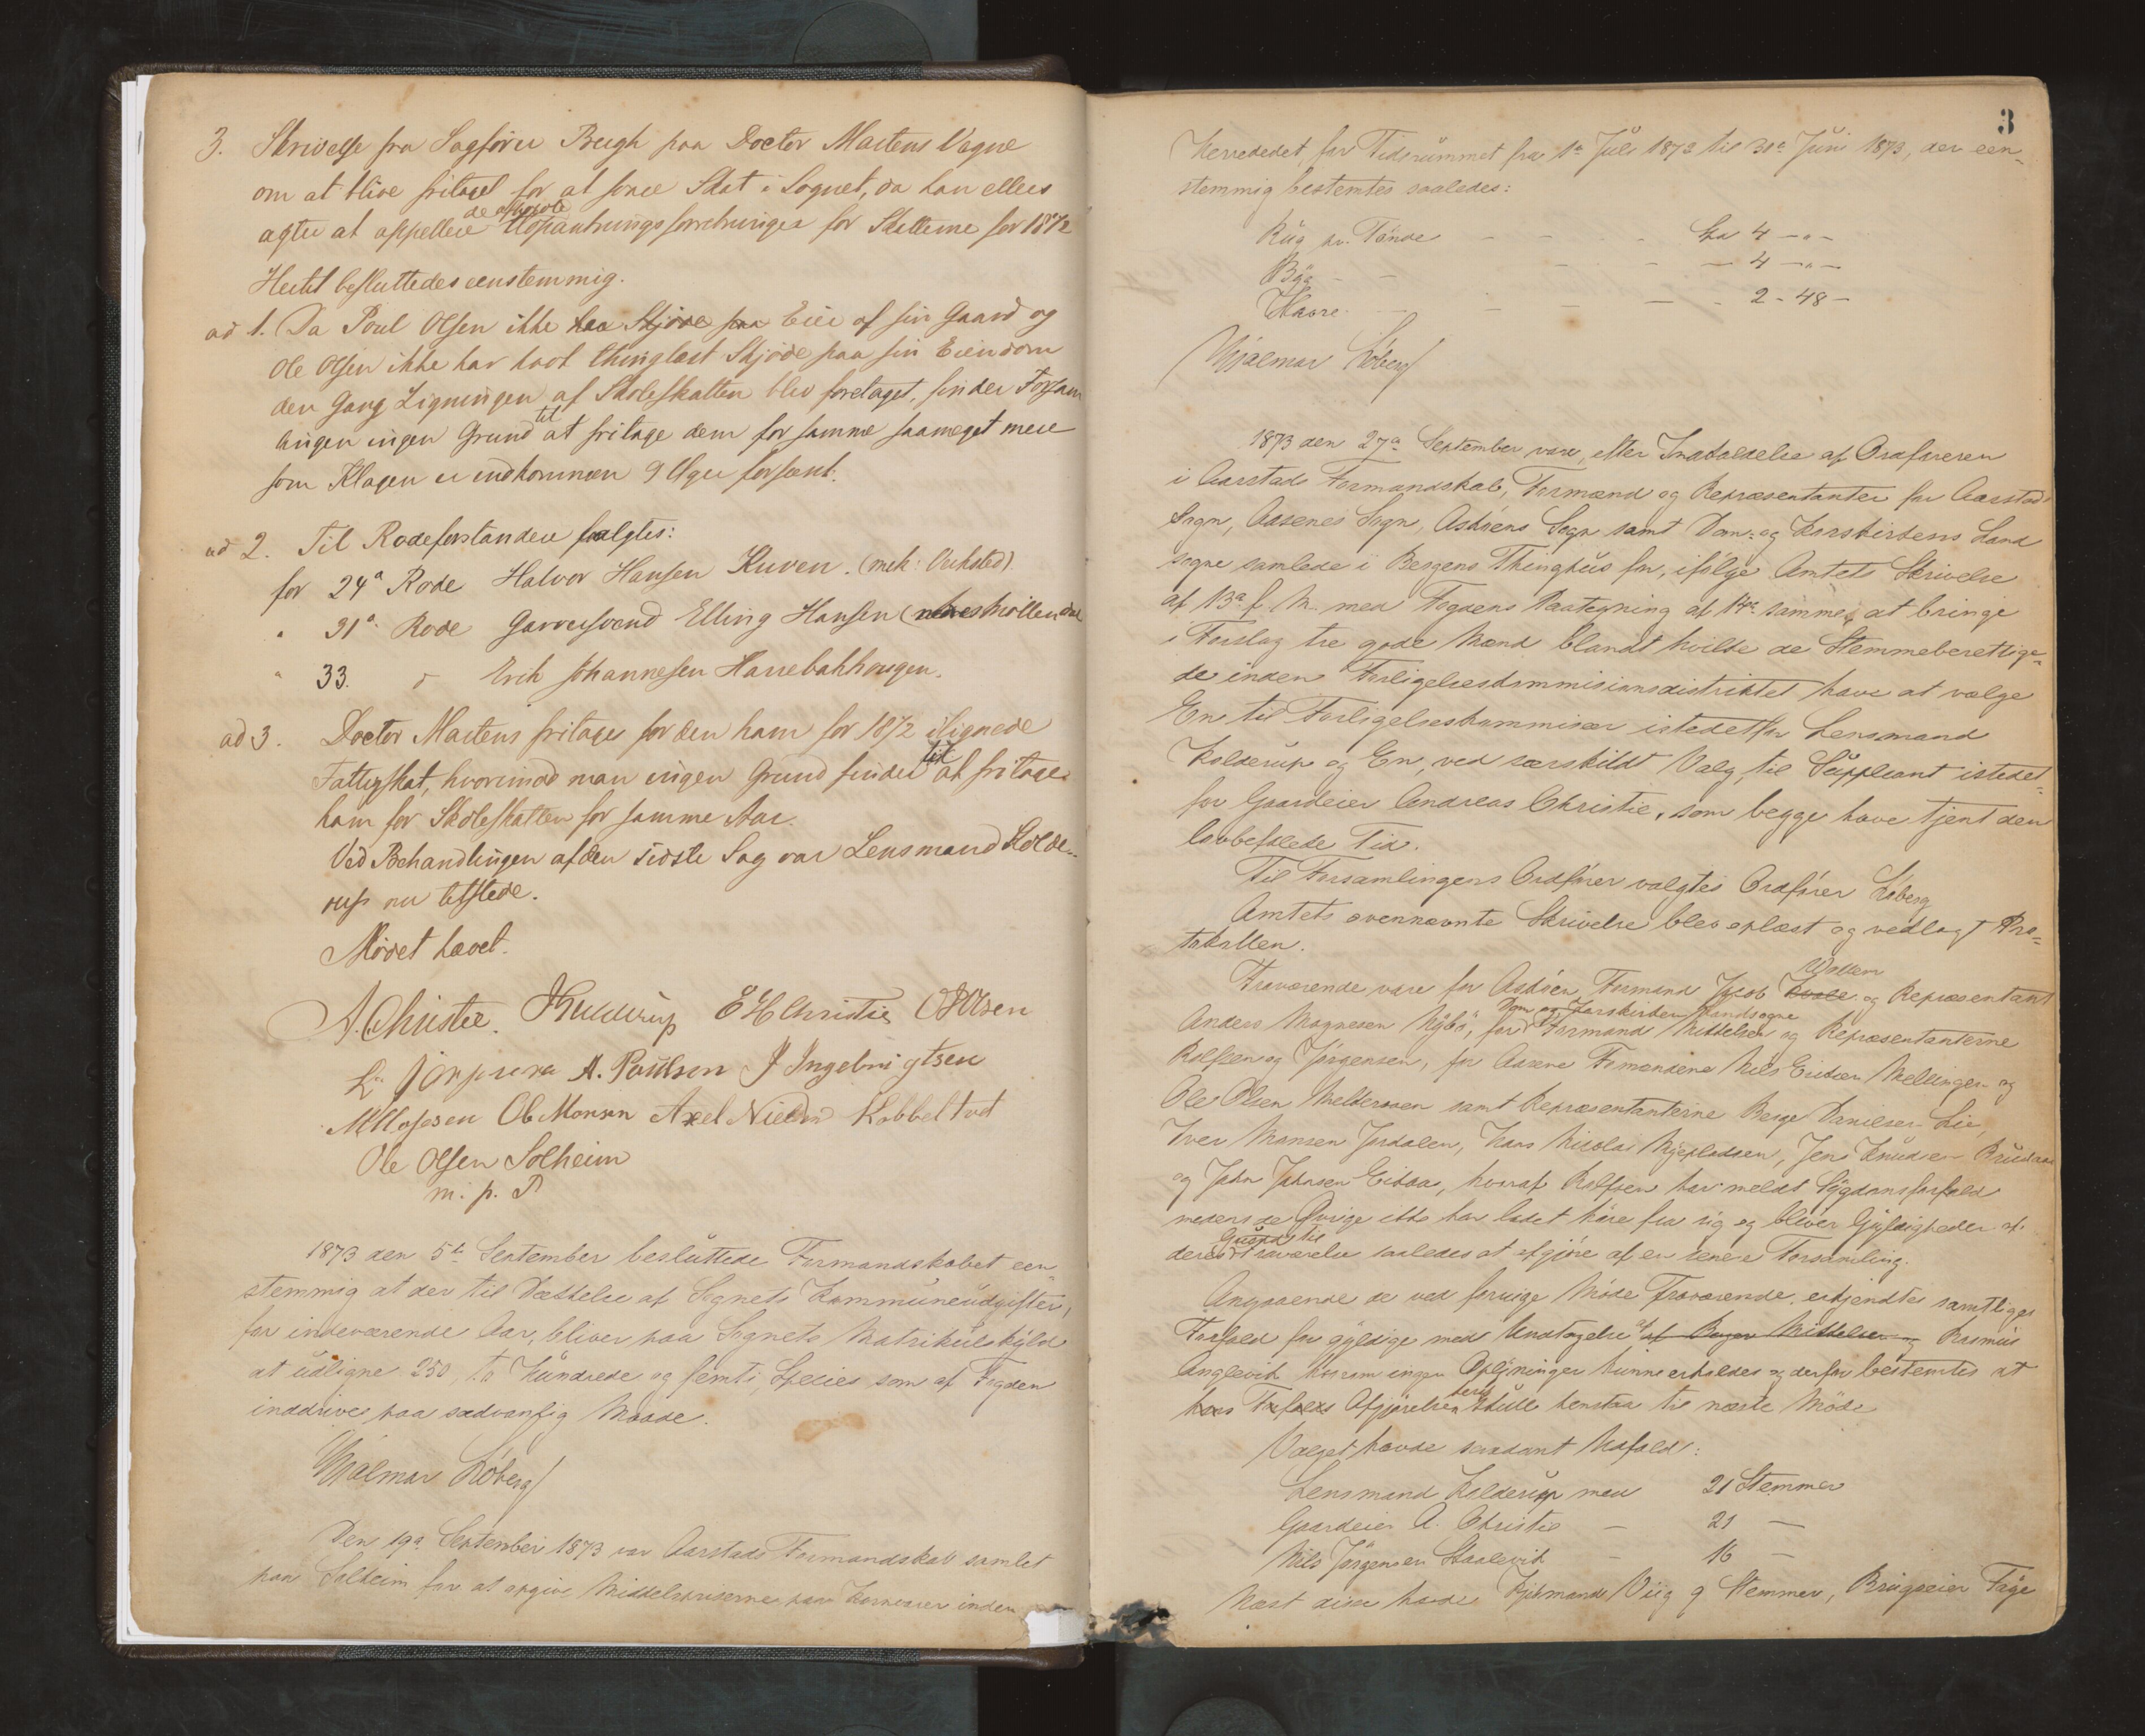 3. Skrivelse fra Sagfører Bergh paa Doctor Martens Vegne
om at blive fritaget for at svare Skat i Sognet, da han ellers
agter at appellere de afholdte Udpantningsforretninger for Skatterne for 1872
Hertil besluttedes eenstemmig.
ad 1. Da Poul Olsen ikke har Skjøde paa Eier af sin Gaard og
Ole Olsen ikke har havt thinglæst Skjøde paa sin Eiendom
den Gang Ligningen af Skoleskatten blev foretaget, finder Forsam
lingen ingen Grund til at fritage dem for samme saameget mere
som Klagen er indkommen 9 Uger forseent.
ad 2. Til Rodeforstandere valgtes:
for 24de Rode Halvor Hansen Kuven. (mek: Værksted).
" 31de Rode Garversvend Elling Hansen
" 33. d Erik Johannesen Harrebakhougen.
ad 3. Doctor Martens fritages for den ham for 1872 ilignede
Fattigskat, hvorimod man ingen Grund finder til at fritage
ham for Skoleskatten for samme Aar.
Ved Behandlingen af den sidste Sag var Lensmand Kolde-
rup nu tilstede.
Mødet hævet.
A. Christie. Kolderup E H Christie O Olsen
A. Poulson J Ingebrigtsen
Ob Monsen Axel Nielsen Kobbeltvet
Ole Olsen Solheim
m. p. P
1873 den 5te September besluttede Formandskabet een
stemmig at der til Dækkelse af Sognets Kommuneudgifter,
for indeværende Aar, bliver paa Sognets Matrikulskyld
at udligne 250, to Hundrede og femti, Species som af Fogden
inddrives paa sædvanlig Maade.
Hjalmar Løberg
Den 19de September 1873 var Aarstads Formandskab samlet
paa Solheim for at opgive Middelpriserne paa Kornvarer inden
3
Herrededet, for Tidsrummet fra 1ste Juli 1872 til 31te Juni 1873, der een-
stemmig bestemtes saaledes:
Rug pr. Tønde - - - Spd 4 - " -
Byg - - - - - 4 - " -
Havre - - - - - 2 - 48 -
Hjalmar Løberg
1873 den 27de September vare, efter Indkaldelse af Ordføreren
i Aarstads Formandskab, Formænd og Repræsentanter for Aarstads
Sogn, Aasenes Sogn, Askøens Sogn samt Dom- og Korskirkens Land
sogne samlede i Bergens Thinghus for, ifølge Amtets Skrivelse
af 13de f. M. med Fogdens Paategning af 14de samme, at bringe
i Forslag tre gode Mænd blandt hvilke de Stemmeberettige-
de inden Forligelseskommisionsdistriktet have at vælge
En til Forligelseskommissær istedetfor Lensmand
Kolderup og En, ved særskildt Valg, til Suppleant istedet-
for Gaardeier Andreas Christie, som begge have tjent den
lovbefalede Tid.
Til Forsamlingens Ordfører valgtes Ordfører Løberg
Amtets ovennævnte Skrivelse blev oplæst og vedlagt Pro-
tokollen.
Fraværende vare for Askøen Formand Jacob Kvale Wallem og Repræsentant
Anders Magnesen Nybø, for Dom og Korskirken Landsogne Formand Mittelsen og Repræsentanterne
Rolfsen og Jørgensen, for Aasene Formændene Nils Ericsen Mellingen og
Ole Olsen Meldersven samt Repræsentanterne Berge Danielsen Lie,
Iver Monsen Jordalen, Hans Nicolai Mjeldesen, Jens Knudsen
og John Johnsen Eidsaa, hvoraf Rolfsen har meldt Sygdomsforfald
medens de Øvrige ikke har ladet høre fra sig og bliver Gyldigheden af
deres Grund til Fraværelse saaledes at afgjøre af en senere Forsamling.
Angaaende de ved forrige Møde Fraværende erkjendtes samtliges
Forfald for gyldige med Undtagelse af af Roger Mittelsen og Rasmus
Anglevik hvorom ingen Oplysninger kunne erholdes og derfor bestemtes at
hans Forfald Afgjørelsen heraf skulle henstaa til næste Møde
Valget havde saadant Udfald:
Lensmand Kolderup med 21 Stemmer
Gaardeier A. Christie - 21 -
Nils Jørgensen Storlevik - 16 -
Næst disse havde Kjøbmand Viig 9 Stemmer, Brugseier Faye